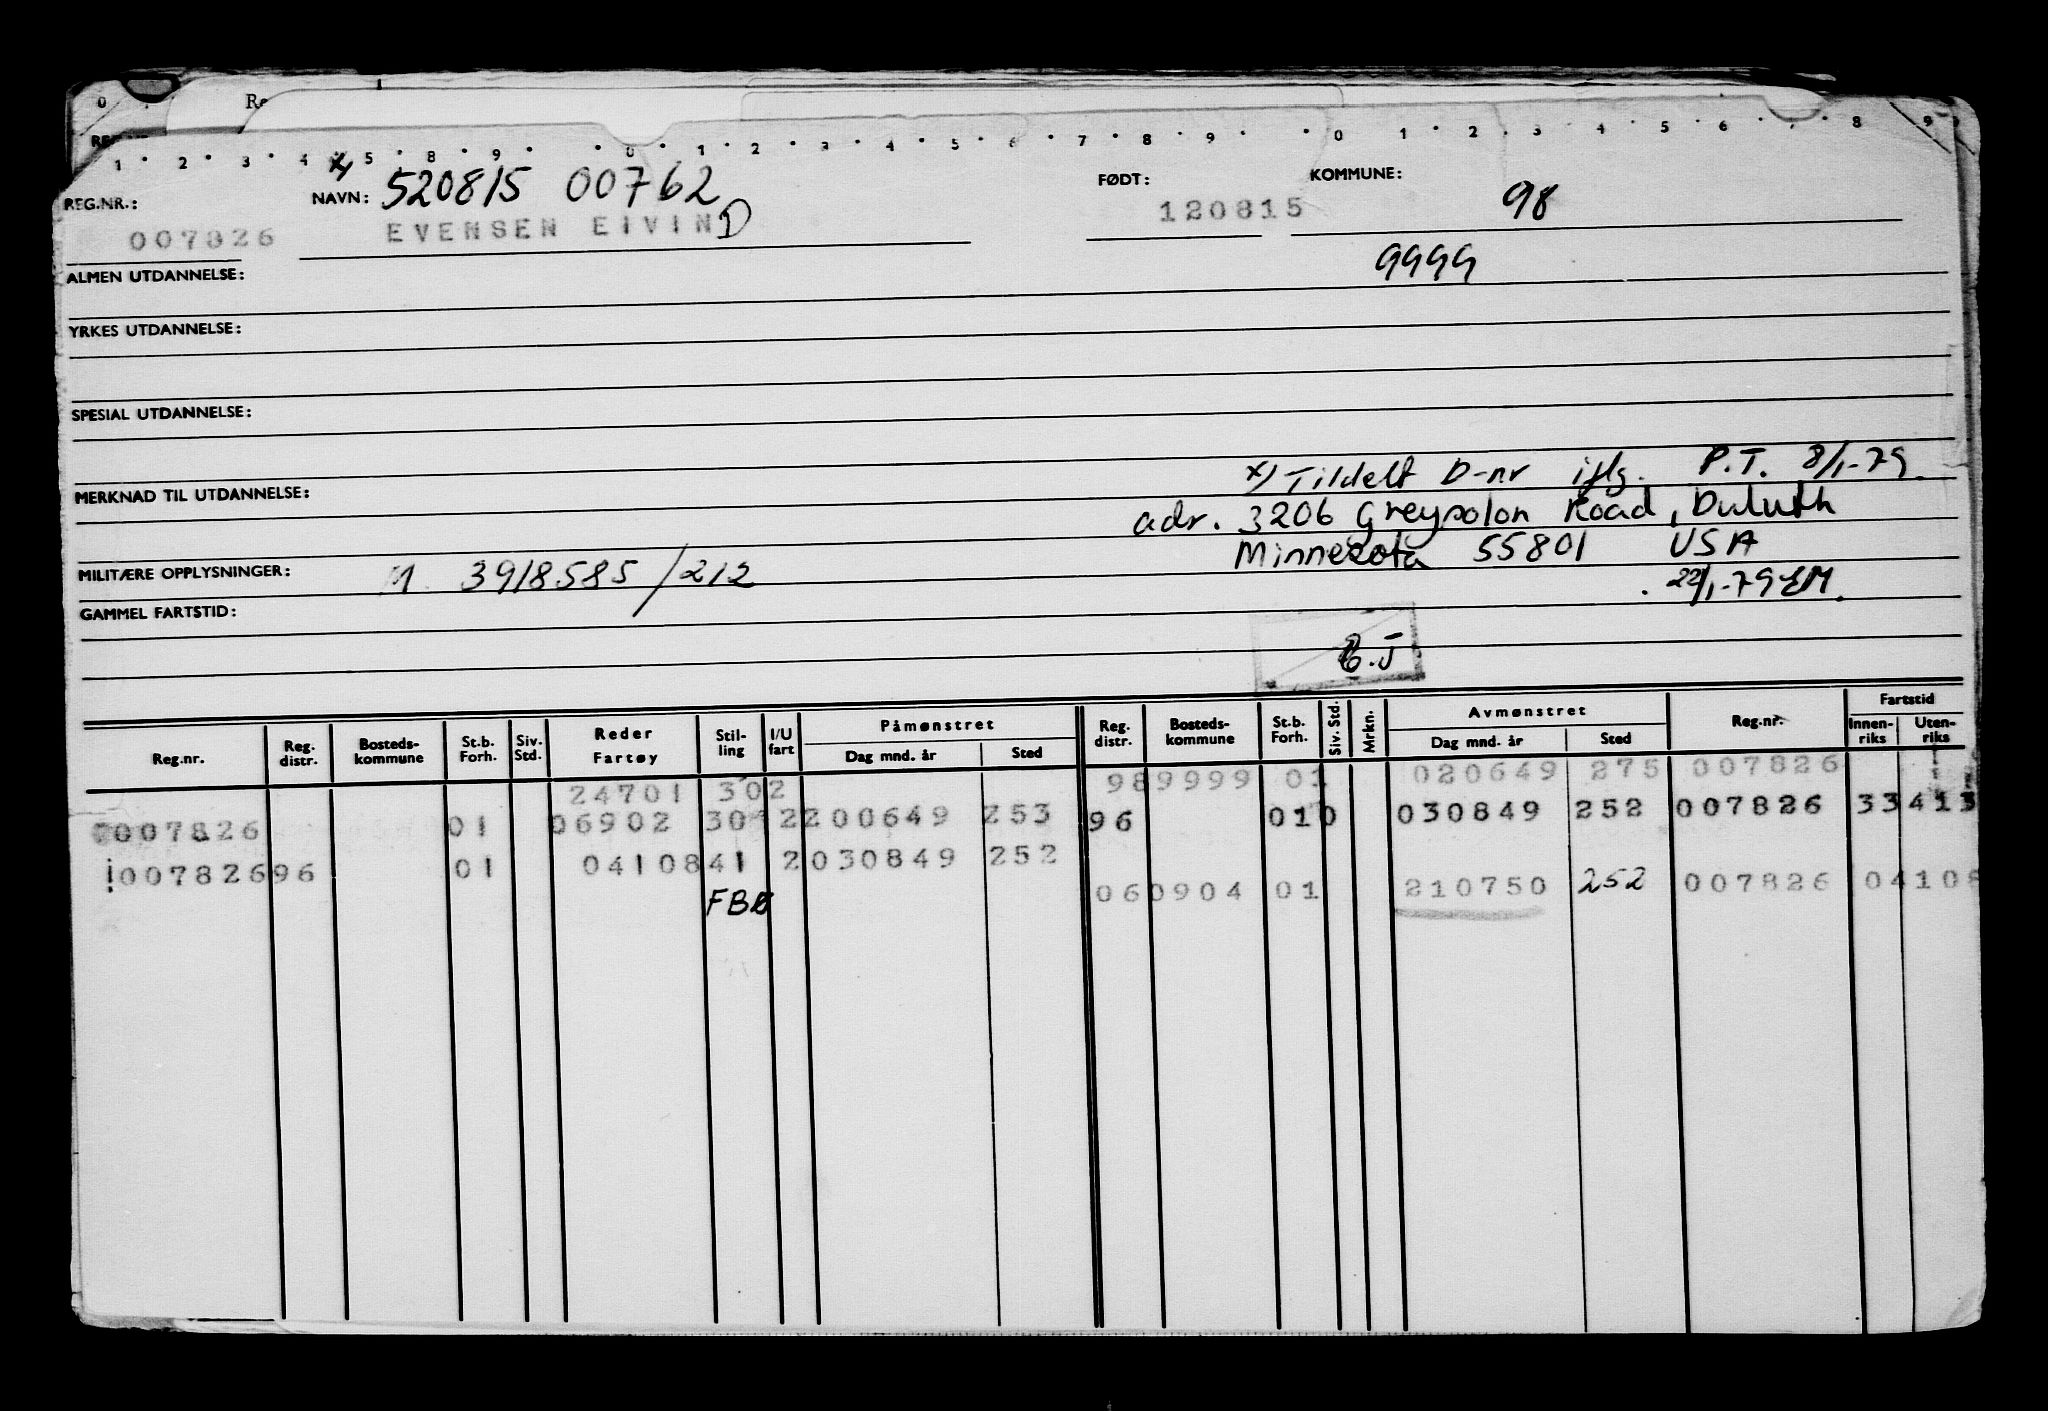 0 Re
1 2 3 4 5 8 9 0 1 2 3 4 5 6 7 8 9 0 1 2 3 4 5 6 7 8 9
REG.NR.: x) NAVN: 520815 00762 FØDT: KOMMUNE: 98
007826 EVENSEN EIVIND 120815
ALMEN UTDANNELSE: 9999
YRKES UTDANNELSE:
SPESIAL UTDANNELSE:
x) Tildelt D-nr iflg. P.T. 8/1-79.
MERKNAD TIL UTDANNELSE: adr. 3206 Greysolon Road, Duluth
Minnesota 55801 USA
MILITÆRE OPPLYSNINGER: M. 3918585/212
22/1-79 EM.
GAMMEL FARTSTID:
Reg.nr. Reg. distr. Bosteds- kommune St.b. Forh. Siv. Std. Reder Fartøy Stil- ling I/U fart Påmønstret Dag mnd. år Sted Reg. distr. Bosteds- kommune St.b. Forh. Siv. Std. Mrkn. Avmønstret Dag mnd. år Sted Reg.nr. Fartstid Innen- riks Uten- riks
24701 302 989999 01 020649 275 007826
007826 01 06902 30 2 200649 253 96 010 030849 252 007826 33 413
007826 96 01 04108 41 2 030849 252
FBØ 060904 01 210750 252 007826 04108